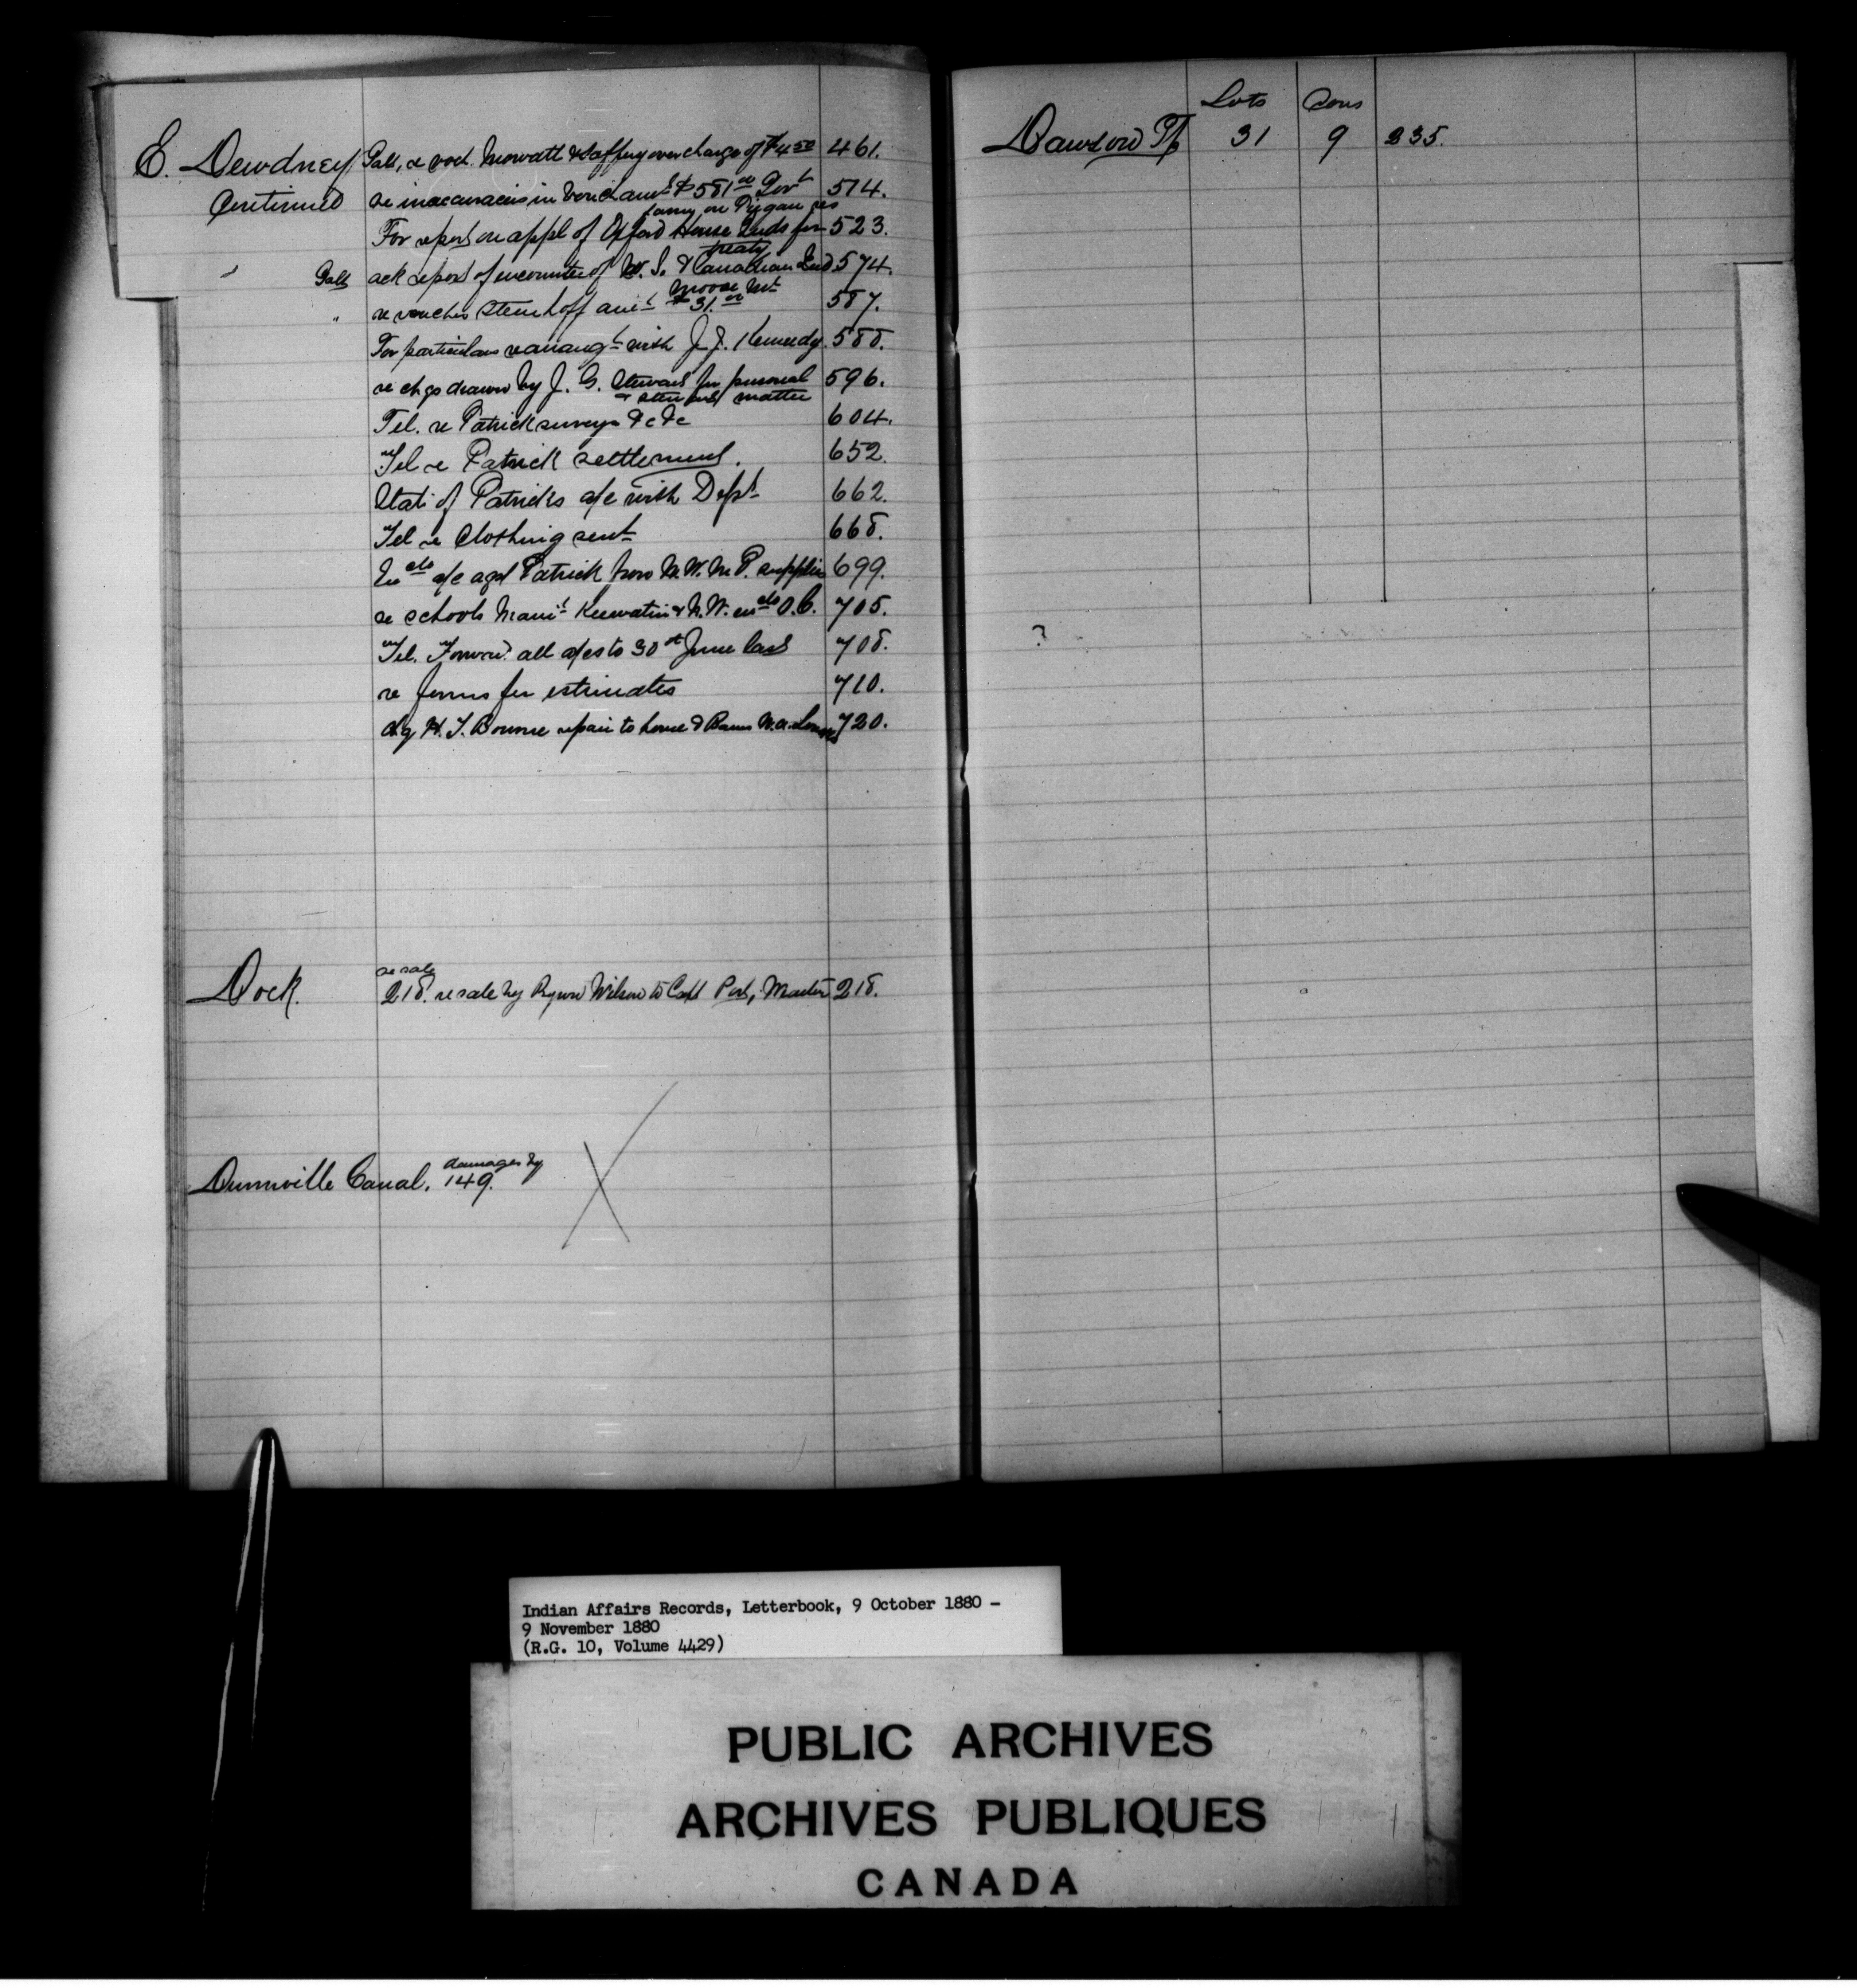 E. Dewdney Galt, re vouch. Mowatt & Saffery overcharge of $4.50 461.
Continued re inaccuracies in vouch amt $581.00 Govt 514.
farm on Piegan res
For report on appl of Oxford House Inds for 523.
treaty
" Galt ack report of encounter of U. S. & Canadian Ind 574.
Moose Mt
" re voucher Steinhoff amt $31.00 587.
For particulars re arrangt with J. J. Kennedy. 588.
re chqs drawn by J. G. Stewart for personal 596.
matter
Tel. re Patrick surveys &c &c 604.
Tel re Patrick settlement. 652.
Stat. of Patricks a/c with Dept 662.
Tel re Clothing sent 668.
a/c agst Patrick from N.W.M.P. supplies 699.
re schools Keewatin & N.W. O.C. 705.
Tel. Forward all a/cs to 30th June last 708.
re forms for estimates 710.
chq H. T. Bourne repair to house & Barns 720.
re sale
Dock. 218. re sale by Wilson to Capt Port, 218.
damages by
Dunnville Canal. 149.
Lots Cons
Dawson Tp 31 9 235.
?
Indian Affairs Records, Letterbook, 9 October 1880 -
9 November 1880
(R.G. 10, Volume 4429)
PUBLIC ARCHIVES
ARCHIVES PUBLIQUES
CANADA